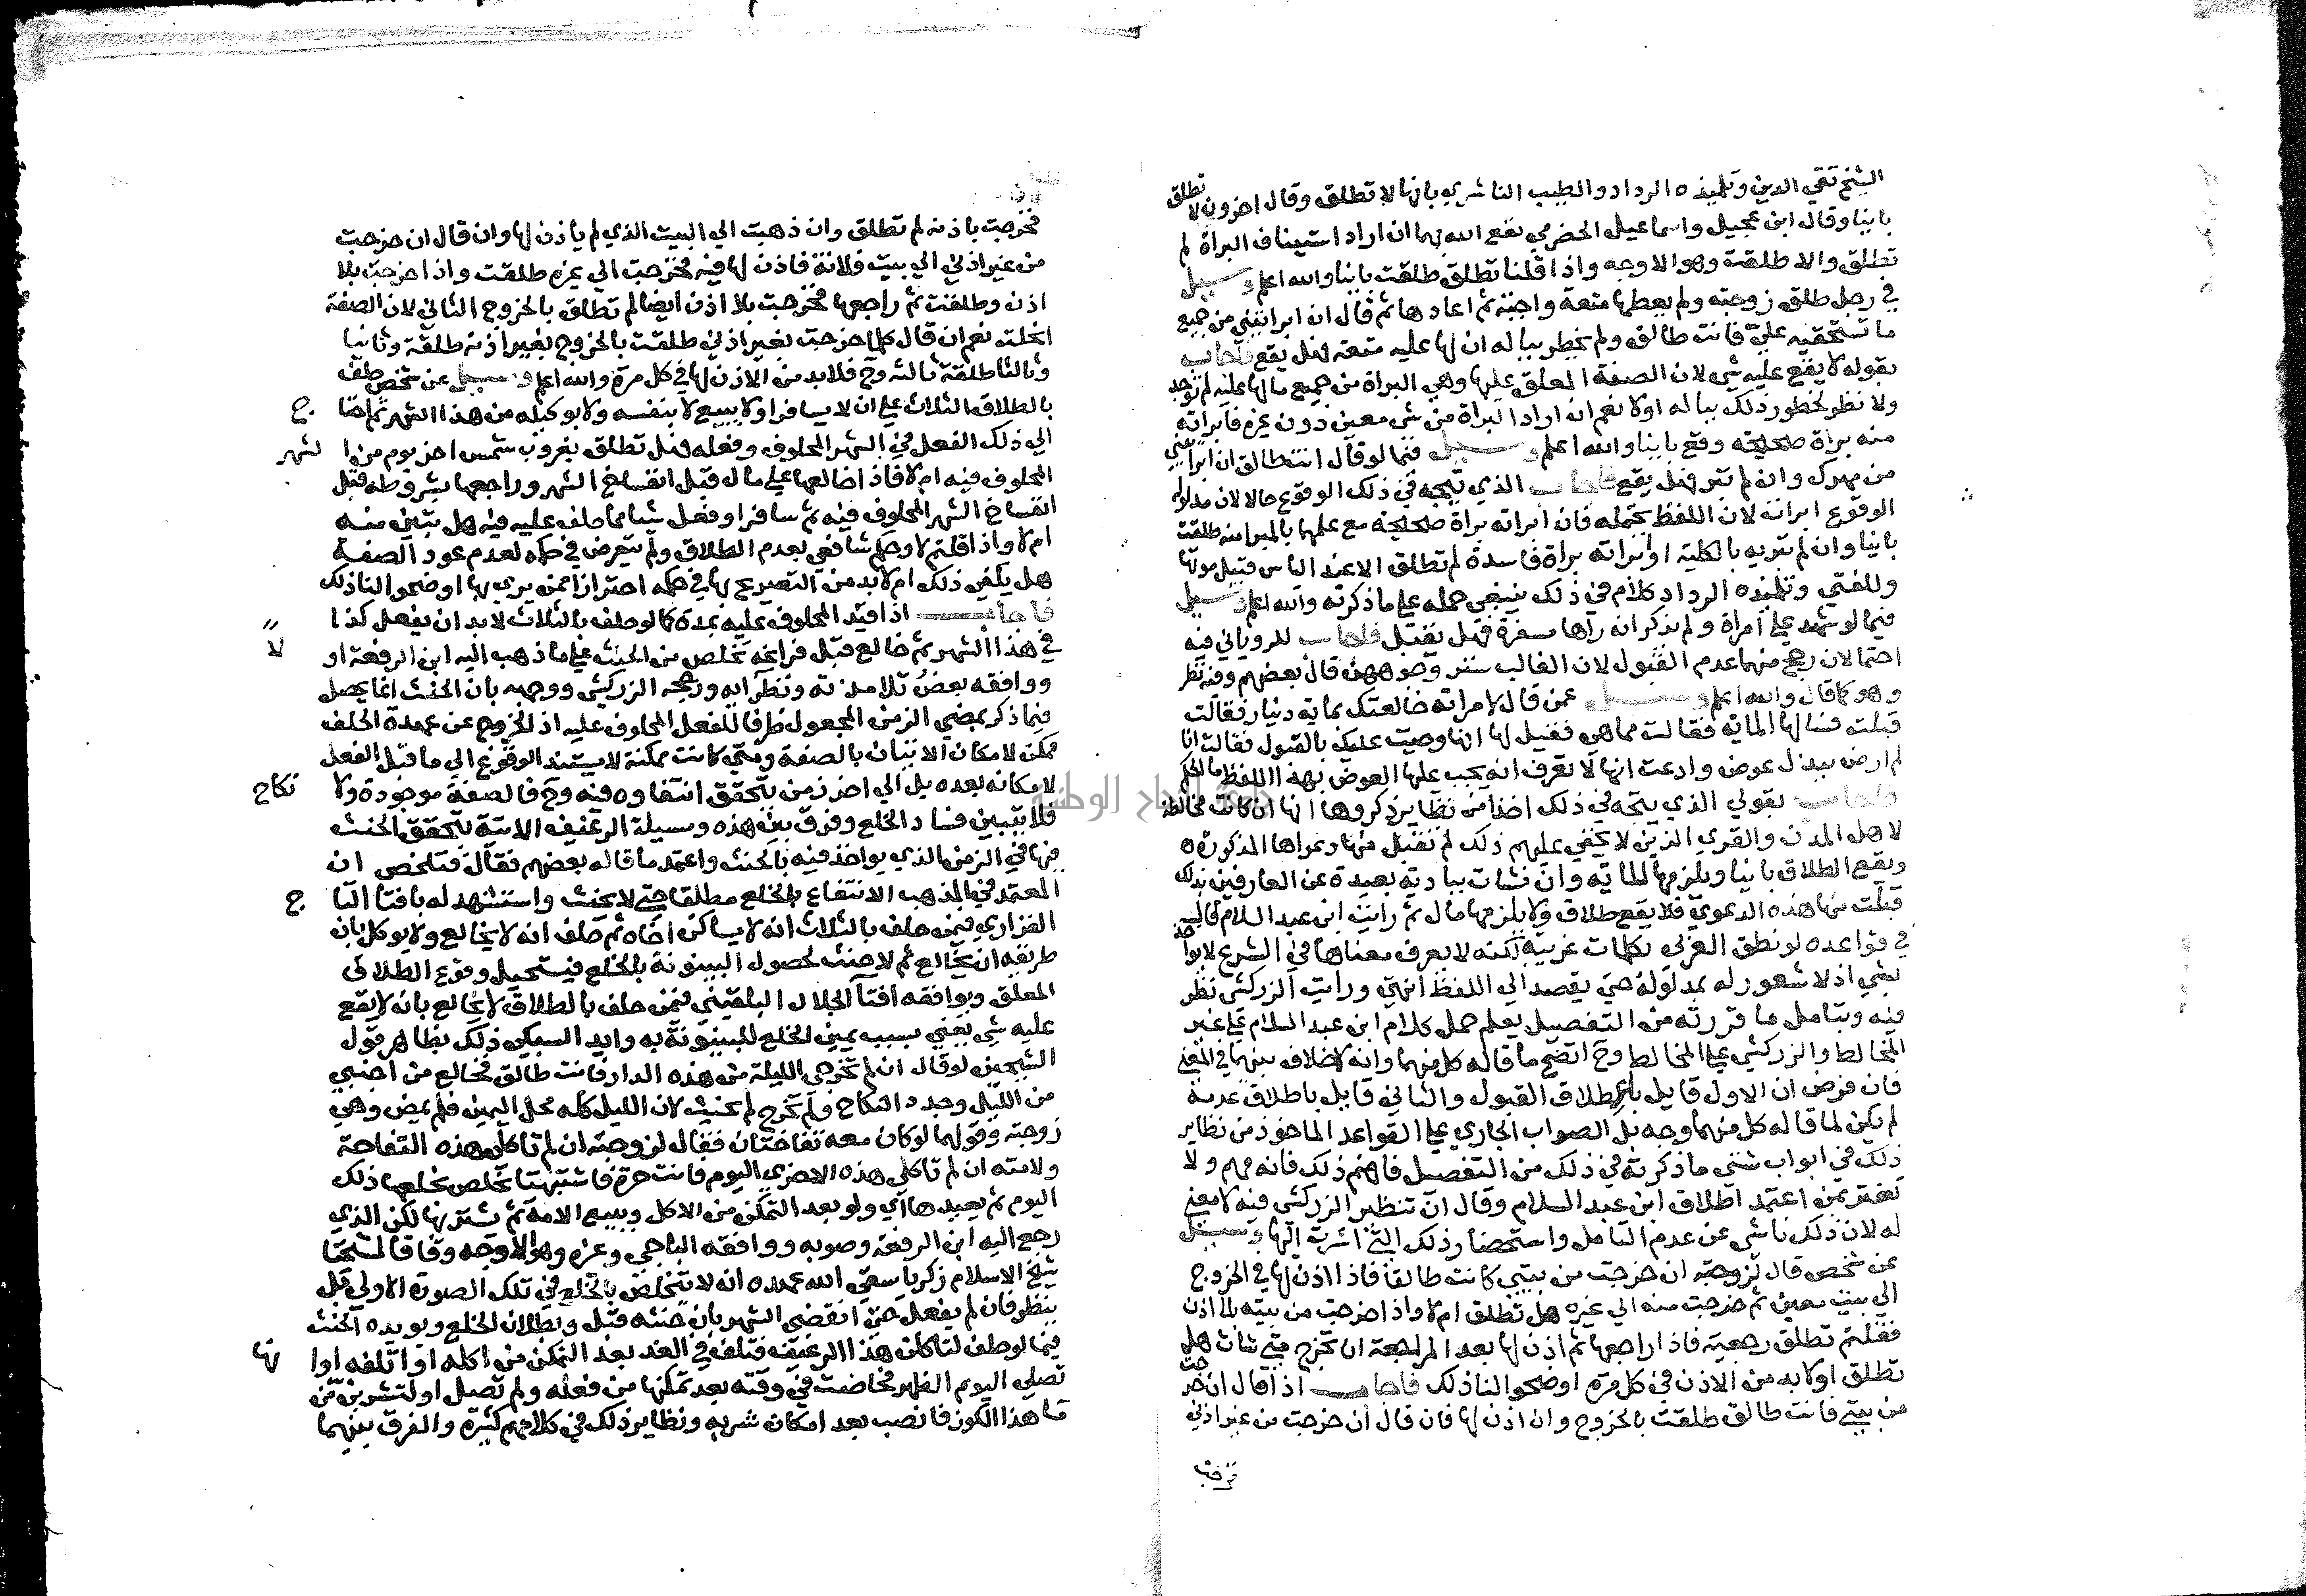 الشيخ تقي الدين وتلميذه الرداد والطيب الناشري بانها لا تطلق وقال اخرون لا تطلق
باينا وقال ابن عجيل واسماعيل الحضرمي نفع الله بهما ان اراد استيناف البراة لم
تطلق والا طلقت وهو الاوجه واذا قلنا تطلق طلقت باينا والله اعلم وسيل
في رجل طلق زوجته ولم يعطها متعة واجبة ثم اعادها ثم قال ان ابراتيني من جميع
ما تستحقيه علي فانت طالق ولم يخطر بباله ان لها عليه متعة فهل يقع فاجاب
بقوله لا يقع عليه شي لان الصفة المعلق عليها وهي البراة من جميع ما لها عليه لم توجد
ولا نظر لخطور ذلك بباله اولا نعم ان اراد البراة من شي معين دون غيره فابراته
منه براة صحيحة وقع باينا والله اعلم وسيل فيما لو قال انت طالق ان ابراتيني
من مهرك وان لم تبر فهل يقع فاجاب الذي يتجه في ذلك الوقوع حالا لان مدلوله
الوقوع ابرات لان اللفظ يحتمله فان ابراته براة صحيحة مع علمها بالمبرا منه طلقت
باينا وان لم تبريه بالكلية او ابراته براة فاسدة لم تطلق الا عند الياس قبيل موتها
وللفتي وتلميذه الرداد كلام في ذلك ينبغي حمله على ما ذكرته والله اعلم وسيل
فيما لو شهد على امراة ولم يذكر انه رآها مسفرة فهل يقبل فاجاب للروياني فيه
احتمالان رجح منهما عدم القبول لان الغالب ستر وجوههن قال بعضهم وفيه نظر
وهو كما قال والله اعلم وسيل عمن قال لامراته خالعتك بماية دينار فقالت
قبلت فسالها الماية فقالت مما هي فقيل لها انها وجبت عليك بالقبول فقالت انا
لم ارض ببذل عوض وادعت انها لا تعرف انه يجب عليها العوض بهذا اللفظ ما الحكم
فاجاب بقولي الذي يتجه في ذلك اخذا من نظاير ذكروها انها ان كانت مخالطة
لاهل المدن والقرى الذين لا يخفى عليهم ذلك لم تقبل منها دعواها المذكورة
ويقع الطلاق باينا ويلزمها الماية وان نشات ببادية بعيدة عن العارفين بذلك
قبلت منها هذه الدعوى فلا يقع طلاق ولا يلزمها مال ثم رايت ابن عبد السلام قال
في قواعده لو نطق العربي بكلمات عربية لكنه لا يعرف معناها في الشرع لا يواخذ
بشي اذ لا شعور له بمدلوله حتى يقصد الى اللفظ انتهى ورايت الزركشي نظر
فيه وبتامل ما قررته من التفصيل يعلم حمل كلام ابن عبد السلام على غير
المخالط والزركشي على المخالط وح اتضح ما قاله كل منهما وانه لا خلاف بينهما في المعنى
فان فرض ان الاول قايل باطلاق القبول والثاني قايل باطلاق عدمه
لم يكن لما قاله كل منهما وجه بل الصواب الجاري على القواعد الماخوذ من نظاير
ذلك في ابواب شتى ما ذكرته في ذلك من التفصيل فافهم ذلك فانه مهم ولا
تغتر بمن اعتمد اطلاق ابن عبد السلام وقال ان تنظير الزركشي فيه لا معنى
له لان ذلك ناشي عن عدم التامل واستحضار ذلك التي اشرت اليها وسيل
عن شخص قال لزوجته ان خرجت من بيتي كانت طالقا فاذا اذن لها في الخروج
الى بيت معين ثم خرجت منه الى غيره هل تطلق ام لا واذا خرجت من بيته بلا اذن
فقلتم تطلق رجعية فاذا راجعها ثم اذن لها بعد المراجعة ان تخرج متى شات هل
تطلق او لا بد من الاذن في كل مرة اوضحوا لنا ذلك فاجاب اذا قال ان خرجت
من بيتي فانت طالق طلقت بالخروج وان اذن لها فان قال ان خرجت من غير اذني
فخرجت
فخرجت باذنه لم تطلق وان ذهبت الى البيت الذي لم ياذن لها وان قال ان خرجت
من غير اذني الى بيت فلانة فاذن لها فيه فخرجت الى غيره طلقت واذا خرجت بلا
اذن وطلقت ثم راجعها فخرجت بلا اذن ايضا لم تطلق بالخروج الثاني لان الصفة
انحلت نعم ان قال كلما خرجت بغير اذني طلقت بالخروج بغير اذنه طلقة وثانيا
وثالثا طلقة ثالثة وح فلا بد من الاذن لها في كل مرة والله اعلم وسيل عن شخص حلف
بالطلاق الثلاث على ان لا يسافر او لا يبيع لا بنفسه ولا بوكيله من هذا الشهر ثم احتاج
الى ذلك الفعل في الشهر المحلوف وفعله فهل تطلق بغروب شمس اخر يوم من الشهر
المحلوف فيه ام لا فاذا خالعها على مال قبل انسلاخ الشهر وراجعها بشروطه قبل
انسلاخ الشهر المحلوف فيه ثم سافر او فعل شيا مما حلف عليه فيه هل تبين منه
ام لا واذا قلتم لا وحكم شافعي بعدم الطلاق ولم يتعرض في حكمه لعدم عود الصفة
هل يكفي ذلك ام لا بد من التصريح بها في حكمه احترازا ممن يرى بها اوضحوا لنا ذلك
فاجاب اذا قيد المحلوف عليه بمدة كما لو حلف بالثلاث لا بد ان يفعل كذا
في هذا الشهر ثم خالع قبل فراغه تخلص من الحنث على ما ذهب اليه ابن الرفعة اولا
ووافقه بعض تلامذته ونظرايه ورجحه الزركشي ووجهه بان الحنث انما يحصل
فيما ذكر بمضي الزمن المجعول ظرفا للفعل المحلوف عليه اذ الخروج عن عهدة الحلف
ممكن لامكان الاتيان بالصفة ومتى كانت ممكنة لا يستند الوقوع الى ما قبل الفعل
لامكانه بعده بل الى اخر زمن يتحقق انتفاوه فيه وح فالصفة موجودة ولا نكاح
فلا يتبين فساد الخلع وفرق بين هذه ومسيلة الرغيف الاتية بتحقق الحنث
فيها في الزمن الذي يواخذ فيه بالحنث واعتمد ما قاله بعضهم فقال فتلخص ان
المعتمد في المذهب الانتفاع بالخلع مطلقا حتى لا يحنث واستشهد له بافتا التاج
الفزاري فيمن حلف بالثلاث انه لا يساكن اخاه ثم حلف انه لا يخالع ولا يوكل بان
طريقه ان يخالع ثم لا حنث لحصول البينونة بالخلع فيستحيل وقوع الطلاق
المعلق ويوافقه افتا الجلال البلقيني فيمن حلف بالطلاق لا يخالع بانه لا يقع
عليه شي يعني بسبب يمين الخلع للبينونة به وايد السبكي ذلك بظاهر قول
الشيخين لو قال ان لم تخرجي الليلة من هذه الدار فانت طالق فخالع من اجنبي
من الليل وجدد النكاح ولم تخرج لم يحنث لان الليل كله محل اليمين فلم يمض وهي
زوجته وقولهما لو كان معه تفاحتان فقال لزوجته ان لم تاكلي هذه التفاحة
ولامته ان لم تاكلي هذه الاخرى اليوم فانت حرة فاشتبهتا تخلص بخلعها ذلك
اليوم ثم يعيدها اي ولو بعد التمكن من الاكل وببيع الامة ثم يشتريها لكن الذي
رجع اليه ابن الرفعة وصوبه ووافقه الباجي وغيره وهو الاوجه وفاقا لشيخنا
شيخ الاسلام زكريا سقى الله عهده انه لا يتخلص بالخلع في تلك الصورة الاولى بل
ينظر فان لم يفعل حتى انقضى الشهر بان حنثه قبل وبطلان الخلع ويويده الحنث
فيما لو حلف لتاكلن هذا الرغيف فتلف في الغد بعد التمكن من اكله او اتلفه او انها
تصلي اليوم الظهر فحاضت في وقته بعد تمكنها من فعله ولم تصل او لتشربن من
ما هذا الكوز فانصب بعد امكان شربه ونظاير ذلك في كلامهم كثيرة والفرق بينهما
جامعة النجاح الوطنية